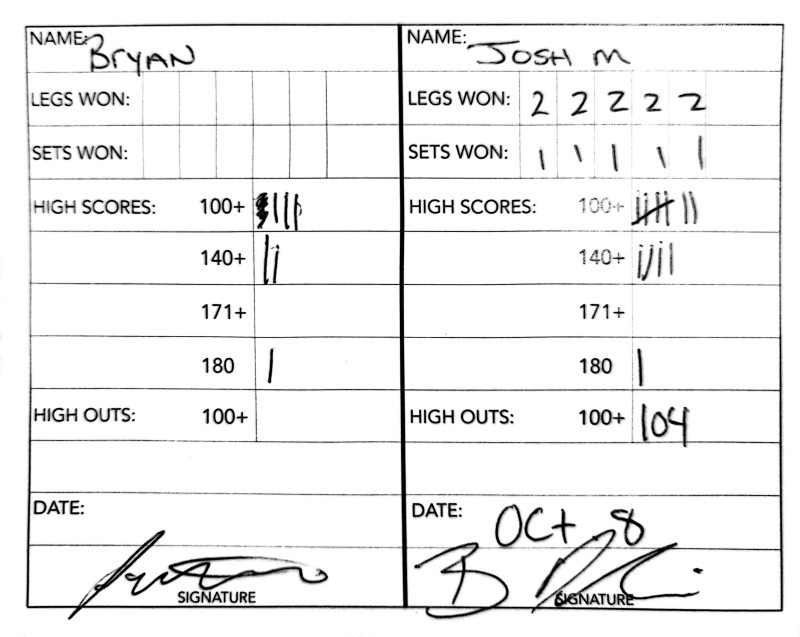 NAME: BryAN
LEGS WON:
SETS WON:
HIGH SCORES: 100+ |||
140+ ||
171+
180 |
HIGH OUTS: 100+
DATE:
SIGNATURE
NAME: JOSH M
LEGS WON: 2 2 2 2 2
SETS WON: 1 1 1 1 1
HIGH SCORES: 100+ |||| ||
140+ ||||
171+
180 |
HIGH OUTS: 100+ 104
DATE: OCt 8
SIGNATURE